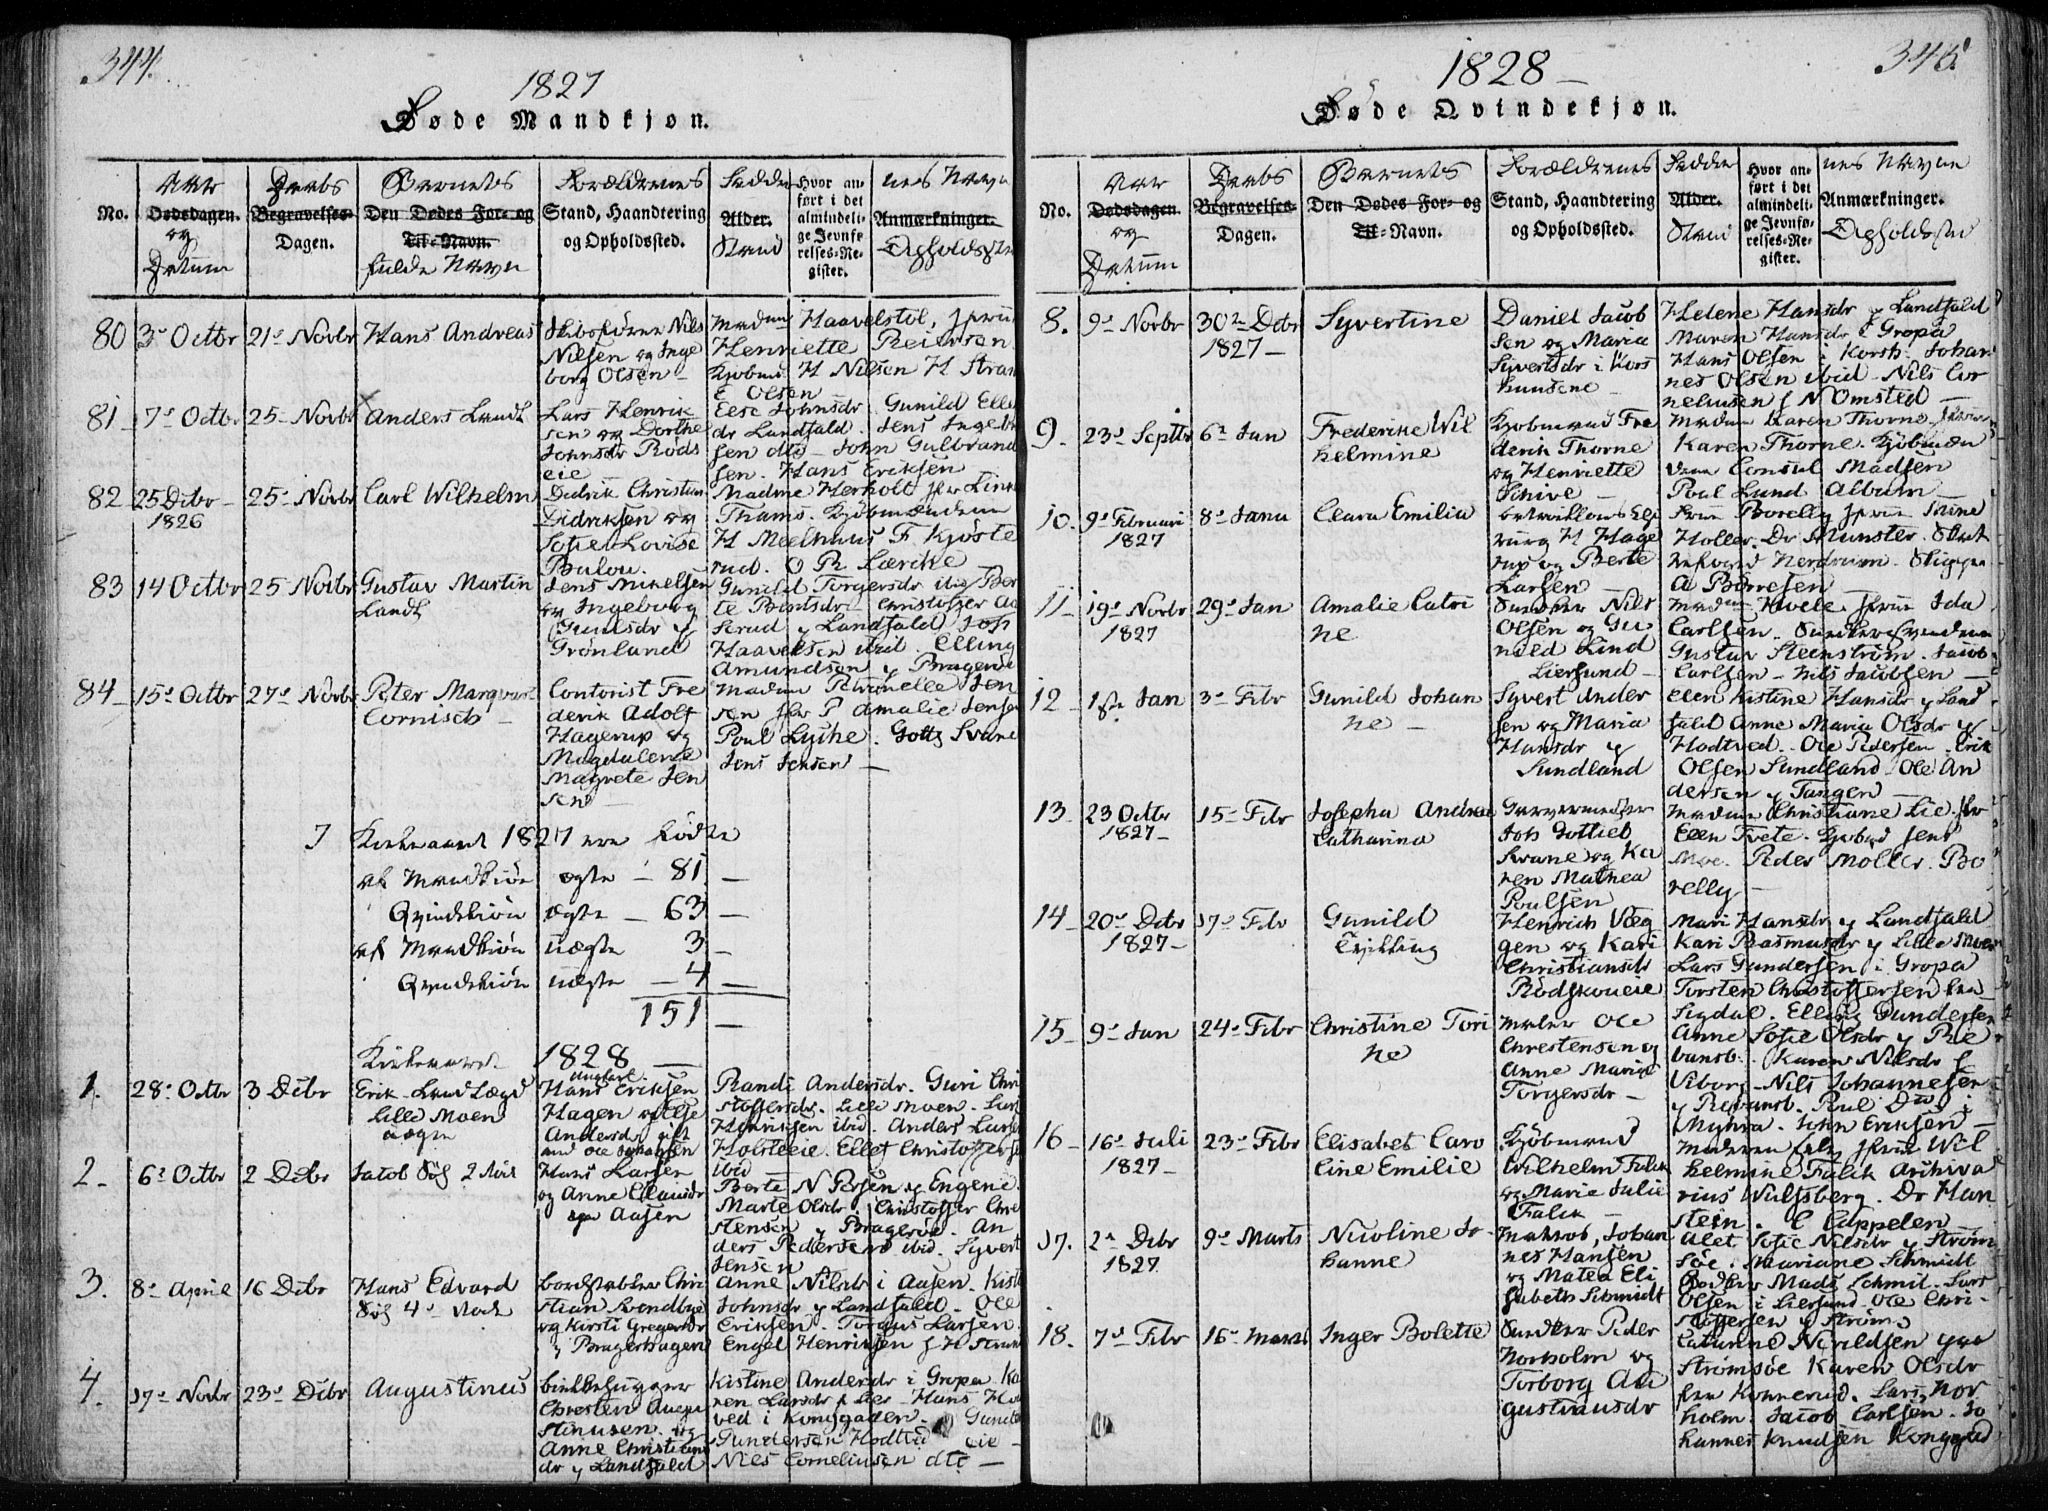 344.
1827
Døde Mandkjøn.
No.
Aar
Dødsdagen.
og
Datum
Daabs
Begravelses-
Dagen.
Barnets
Den Dødes For- og
Til-Navn.
fulde Navn
Forældrenes
Stand, Haandtering
og Opholdssted.
Fadder
Alder.
Stand
Hvor an-
ført i det
almindeli-
ge Jevnfø-
relses-Re-
gister.
nes Navn
Anmærkninger.
Opholdsste
80 3 Octbr 21 Novbr Hans Andreas
Nils
Nilsen og Inge
borg Olsen
Madam Haavelstol, Jfru
Henriette Reiersen
Kjøbmd H Nilsen H Stran
E Olsen
81 7 Octbr 25 Novbr Anders Landf
Lars Henrik
sen og Dorthe
Johnsdr Røds
eie
Else Johnsdr Gunild Elle
dr Landfald. Jens Ingeb
sen do John Gulbrand
sen. Hans Eriksen
82 25 Debr 1826 25 Novbr Carl Wilhelm
Didrik Christian
Didriksen og
Sofie Lovise
Bulou.
Madme Herholt Jfr Linn
Thams. Kjøbmændene
H Meelhuus F Kjøste
rud. O R Lærche
83 14 Octbr 25 Novbr Gustav Martin
Landf
Jens Mikelsen
og Ingeborg
Gunilsdr y
Grønland
Gunild Torgersdr ibid Ber
te Bentsdr Christoffer Aa
serud y Landfald Joh
Haavelsen ibid. Elling
Amundsen y Bragerø
84 15 Octbr 27 Novbr Peter Marqvart
Cornisch
Contorist Fre
derik Adolf
Hagerup og
Magdalene
Magrete Jen
sen
Madam Petronelle Jen
sen Jfr P Amalie Jensen
Poul Lyche. Gottf Svane
Jens Jensen
I Kirkeaaret 1827 ere Fødte
af Mandkiøn ægte 81
Qvindekiøn ægte 63
af Mandkiøn uægte 3
Qvindekiøn uægte 4
151
Kirkeaaret 1828
1. 28 Octbr 3 Debr Erik
Lille Moen
uægte
Hans Eriksen
Hagen og Else
Andersdr gift
med Ole Johansen
Randi Andersdr. Guri Chri
stoffersdr. Lille Moen. Lars
Henriksen ibid. Anders Larsen
Holsteie. Ellef Christoffersen
ibid
2. 6 Octbr 2 Debr Jacob
Hans Larsen
og Anne Ellausdr
Aasen
Berte N Persen og Engene.
Marte Olsdr. Christoffer Chre
stensen y Bragerøe. An
ders Pedersens ibid. Syvert
Jensen
3. 8 April 16 Debr Hans Edvard
Chri
stian Svendbye
og Kirsti Gregersdr
y Bragerhagen
Anne Nilsdr i Aasen. Kist
Johnsdr y Landfald. Ole
Eriksen. Torgus Larsen.
Engel Henriksen
4. 17 Novbr 23 Debr Augustinus
Christen Augu
stinusen og
Anne Christians
dr y Landfald
Kistine Andersdr i Gropa. Ka
ren Larsdr Hans Ho
ved i Konggaden. Gunde
Gundersen Hodtvd eie
Nils Corneliusen do
345.
1828
Døde Qvindekjøn.
No.
Aar
Dødsdagen
og
Datum
Daabs
Begravelses-
Dagen.
Barnets
Den Dødes For- og
Til-Navn.
Forældrenes
Stand, Haandtering
og Opholdssted.
Fadder
Alder.
Stand
Hvor an-
ført i det
almindeli-
ge Jevnfø-
relses-Re-
gister.
nes Navne
Anmærkninger.
Opholdssted
8. 9 Novbr 30 Debr 1827 Syvertine
Daniel Jacob
sen og Maria
Sivertsdr i Kors
Helene Hansdr y Landfald
Maren Hansdr i Gropa
Hans Olsen i Korsh. Johan
nes Olsen ibid. Nils Cor
neliusen f N Omsted
9. 23 Septbr 6 Jan Frederikke Wil
helmine
Kjøbmand Fre
derik Thorne
og Henriette
Schive
Madam Karen Thorne, Jfr
Karen Thorne. Kjøbmæn
dene Consul Madsen
Poul Lund Album
10. 9 Februari 1827 8 Janu Clara Emilia
H Hage
rup og Berte
Larsen
Fru Borelly Jfru Trine
Holler Dr Munster.
Nerdrum.
A Børresen
11. 19 Novbr 1827 29 Jan Amalie Catri
ne
Snedker Nils
Olsen og Gu
nild Lind
Liersund
Madam Hvele Jfru Ida
Carlsen. Snedkersvendene
Gustav Steenstrøm. Jacob
Carlsen. Nils Jacobsen
12 1ste Jan 3 Febr Gunild Johan
ne
Syvert Ander
sen og Maria
Hansdr y
Sundland
Elen Kistine Hansdr y Land
fald Anne Maria Olsdr y
Hodtved. Ole Pedersen. Erik
Olsen Sundland. Ole An
dersen y Tangen
13. 23 Octbr 1827 15 Febr Josepha Andrea
Catharina
Garvermester
Joh Gottlieb
Svane og Ka
ren Mathea
Poulsen
Madam Christiane Lie. Jfr
Elen Tvete. Jens
Moe. Peder Møller. Bo
relly
14. 20 Debr 1827 17 Febr Gunild
Tvilling
Henrich Veg
gen og Kari
Christiansdr
Rødskoueie
Mari Hansdr y Landfald
Kari Rasmusdr y Lille Moen
Lars Gundersen i Gropa
Torsten Christoffersen fra
Sigdal. Elling Gundersen
15. 9 Jan 24 Febr Christine Tori
ne
Maler Ole
Chrestensen og
Anne Maria
Torgersdr
Anne Sofie Olsdr y Re
bansb. Karen Nilsdr f
Viborg. Nils Johannesen
y Rebansb. Poul Do i
Myhra. John Eriksen
16. 16 Juli 1827 23 Febr Elisabet Caro
line Emilie
Kjøbmand
Wilhelm Falck
og Marie Julie
Falck
Madam Jfru Wil
helmine Falck Archiva
rius Wulfsberg. Dr Han
stein. C Cappelen
17. 2 Debr 1827 9 Marts Nicoline Jo-
hanne
Matros, Johan
nes Hansen
og Matea Eli
sabeth Schmidt
Alet Sofie Nilsdr y Strøm
søe. Mariane Schmidt
Mads Schmit. Lars
Olsen i Liersund. Ole Chri-
stoffersen y Strøms
18. 7 Febr 16 Marts Inger Bolette
Snedker Peder
Norholm og
Torborg Au
gustinusdr
Catrine Nerildsen paa
Strømsøe Karen Olsdr
fra Konnerud. Lars Nor
holm. Jacob Carlsen. Jo
hannes Knudsen Konggad